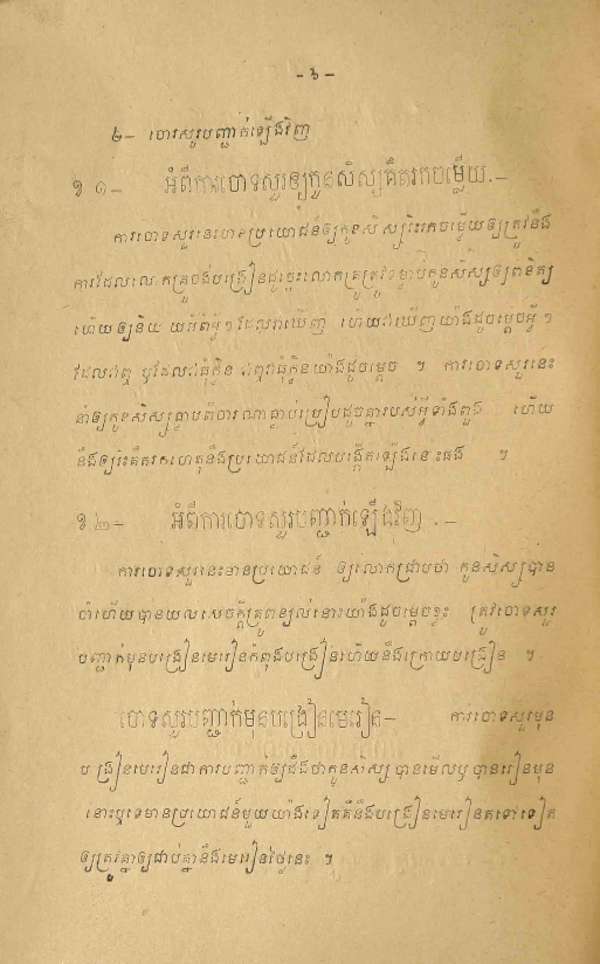 - ៦ -
២- ចោទសួរបញ្ជាក់ឡើងវិញ
ខ ១- អំពីការចោទសួរឲ្យកូនសិស្សគិតរកចម្លើយ.-
ការចោទសួរនេះមានប្រយោជន៍ឲ្យកូនសិស្សរិះរកចម្លើយឲ្យត្រូវនឹង
ការដែលលោកគ្រូចង់បង្រៀនដូច្នេះលោកគ្រូត្រូវ កូនសិស្សឲ្យពិនិត្យ
ហើយឲ្យនិយាយអំពីអ្វីៗដែលវាឃើញ ហើយវាឃើញយ៉ាងដូចម្តេចអ្វីៗ
ដែលវាឮ ឬដែលវាធុំក្លិន វាឮវាធុំក្លិនយ៉ាងដូចម្តេច ។ ការចោទសួរនេះ
នាំឲ្យកូនសិស្សធ្លាប់ពិចារណាធ្លាប់ប្រៀបដូចគ្នារបស់អ្វីទាំងពួង ហើយ
នឹងឲ្យរិះគិតរកហេតុនឹងប្រយោជន៍ដែលបង្កើតឡើងនេះផង ។
ខ ២- អំពីការចោទសួរបញ្ជាក់ឡើងវិញ .-
ការចោទសួរនេះមានប្រយោជន៍ ឲ្យលោកជ្រាបថា កូនសិស្សបាន
ចាំហើយបានយល់សេចក្តីគ្រូពន្យល់នោះយ៉ាងដូចម្តេចខ្លះ ត្រូវចោទសួរ
បញ្ជាក់មុនបង្រៀនមេរៀនកំពុងបង្រៀនហើយនឹងក្រោយបង្រៀន ។
ចោទសួរបញ្ជាក់មុនបង្រៀនមេរៀន- ការចោទសួរមុន
បង្រៀនមេរៀនជាការបញ្ជាក់ឲ្យដឹងថាកូនសិស្សបានមើលឬបានរៀនមុន
នោះឬទេមានប្រយោជន៍មួយយ៉ាងទៀតគឺនឹងបង្រៀនមេរៀនតទៅទៀត
ឲ្យត្រូវគ្នាឲ្យជាប់គ្នានឹងមេរៀនថ្ងៃនេះ ។